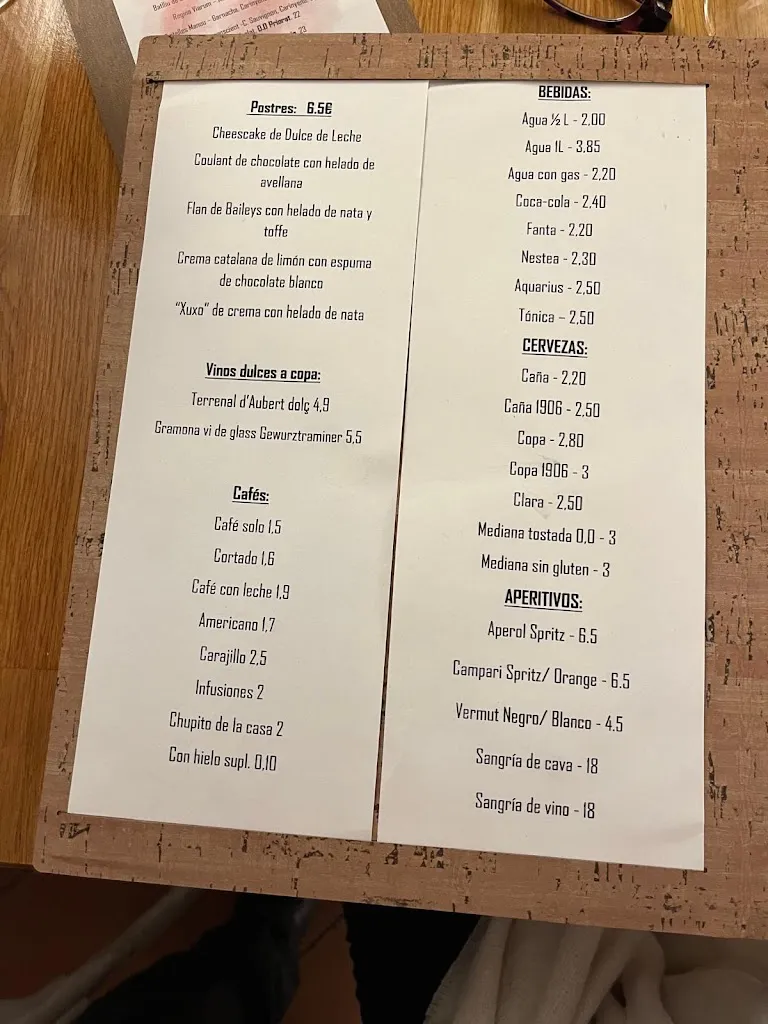 Regina Viarum -
Garnacha, Cariñyena,
C. Sauvignon, Cariñyena,
D.O Priorat. 22
23
Postres: 6.5€
Cheescake de Dulce de Leche
Coulant de chocolate con helado de
avellana
Flan de Baileys con helado de nata y
toffe
Crema catalana de limón con espuma
de chocolate blanco
"Xuxo" de crema con helado de nata
Vinos dulces a copa:
Terrenal d'Aubert dolç 4,9
Gramona vi de glass Gewurztraminer 5,5
Cafés:
Café solo 1,5
Cortado 1,6
Café con leche 1,9
Americano 1,7
Carajillo 2,5
Infusiones 2
Chupito de la casa 2
Con hielo supl. 0,10
BEBIDAS:
Agua ½ L - 2,00
Agua 1L - 3,85
Agua con gas - 2,20
Coca-cola - 2,40
Fanta - 2,20
Nestea - 2,30
Aquarius - 2,50
Tónica – 2,50
CERVEZAS:
Caña - 2,20
Caña 1906 - 2,50
Copa - 2,80
Copa 1906 - 3
Clara - 2,50
Mediana tostada 0,0 - 3
Mediana sin gluten - 3
APERITIVOS:
Aperol Spritz - 6.5
Campari Spritz/ Orange - 6.5
Vermut Negro/ Blanco - 4.5
Sangría de cava - 18
Sangría de vino - 18